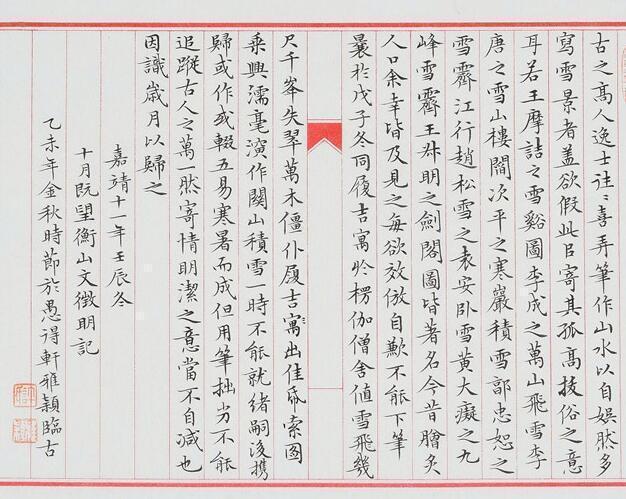 古之高人逸士往々喜弄筆作山水以自娛然多
寫雪景者盖欲假此以寄其孤高拔俗之意
耳若王摩詰之雪谿圖李成之萬山飛雪李
唐之雪山樓閣次平之寒巖積雪郭忠恕之
雪霽江行趙松雪之袁安卧雪黄大癡之九
峰雪霽王叔明之劍閣圖皆著名今昔膾炙
人口余幸皆及見之每欲效倣自歉不能下筆
曩於戊子冬同履吉寓於楞伽僧舍值雪飛幾
尺千峯失翠萬木僵仆履吉寓出佳帋索图
乘興濡毫演作関山積雪一時不能就緒嗣後携
歸或作或輟五易寒暑而成但用筆拙劣不能
追蹤古人之萬一然寄情明潔之意當不自减也
因識歲月以歸之
嘉靖十一年壬辰冬
十月既望衡山文徵明記
乙未年金秋時節於愚得軒雅穎臨古